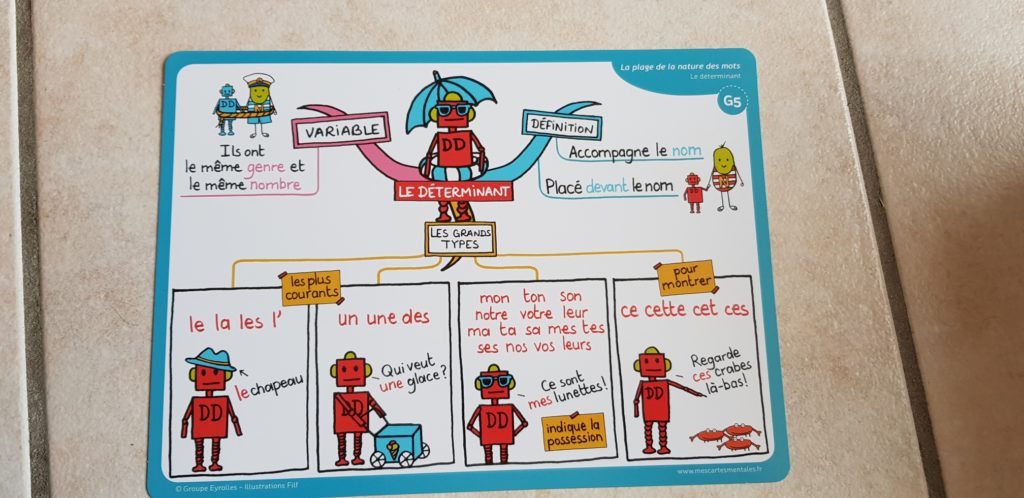 La plage de la nature des mots
Le déterminant
G5
VARIABLE
Ils ont
le même genre et
le même nombre
DD
DD
LE DÉTERMINANT
DÉFINITION
Accompagne le nom
Placé devant le nom
LES GRANDS
TYPES
les plus
courants
pour
montrer
le la les l'
le chapeau
DD
un une des
Qui veut
une glace?
DD
mon ton son
notre votre leur
ma ta sa mes tes
ses nos vos leurs
Ce sont
mes lunettes!
DD
indique la
possession
ce cette cet ces
Regarde
ces crabes
là-bas!
DD
© Groupe Eyrolles – Illustrations Filf
www.mescartesmentales.fr